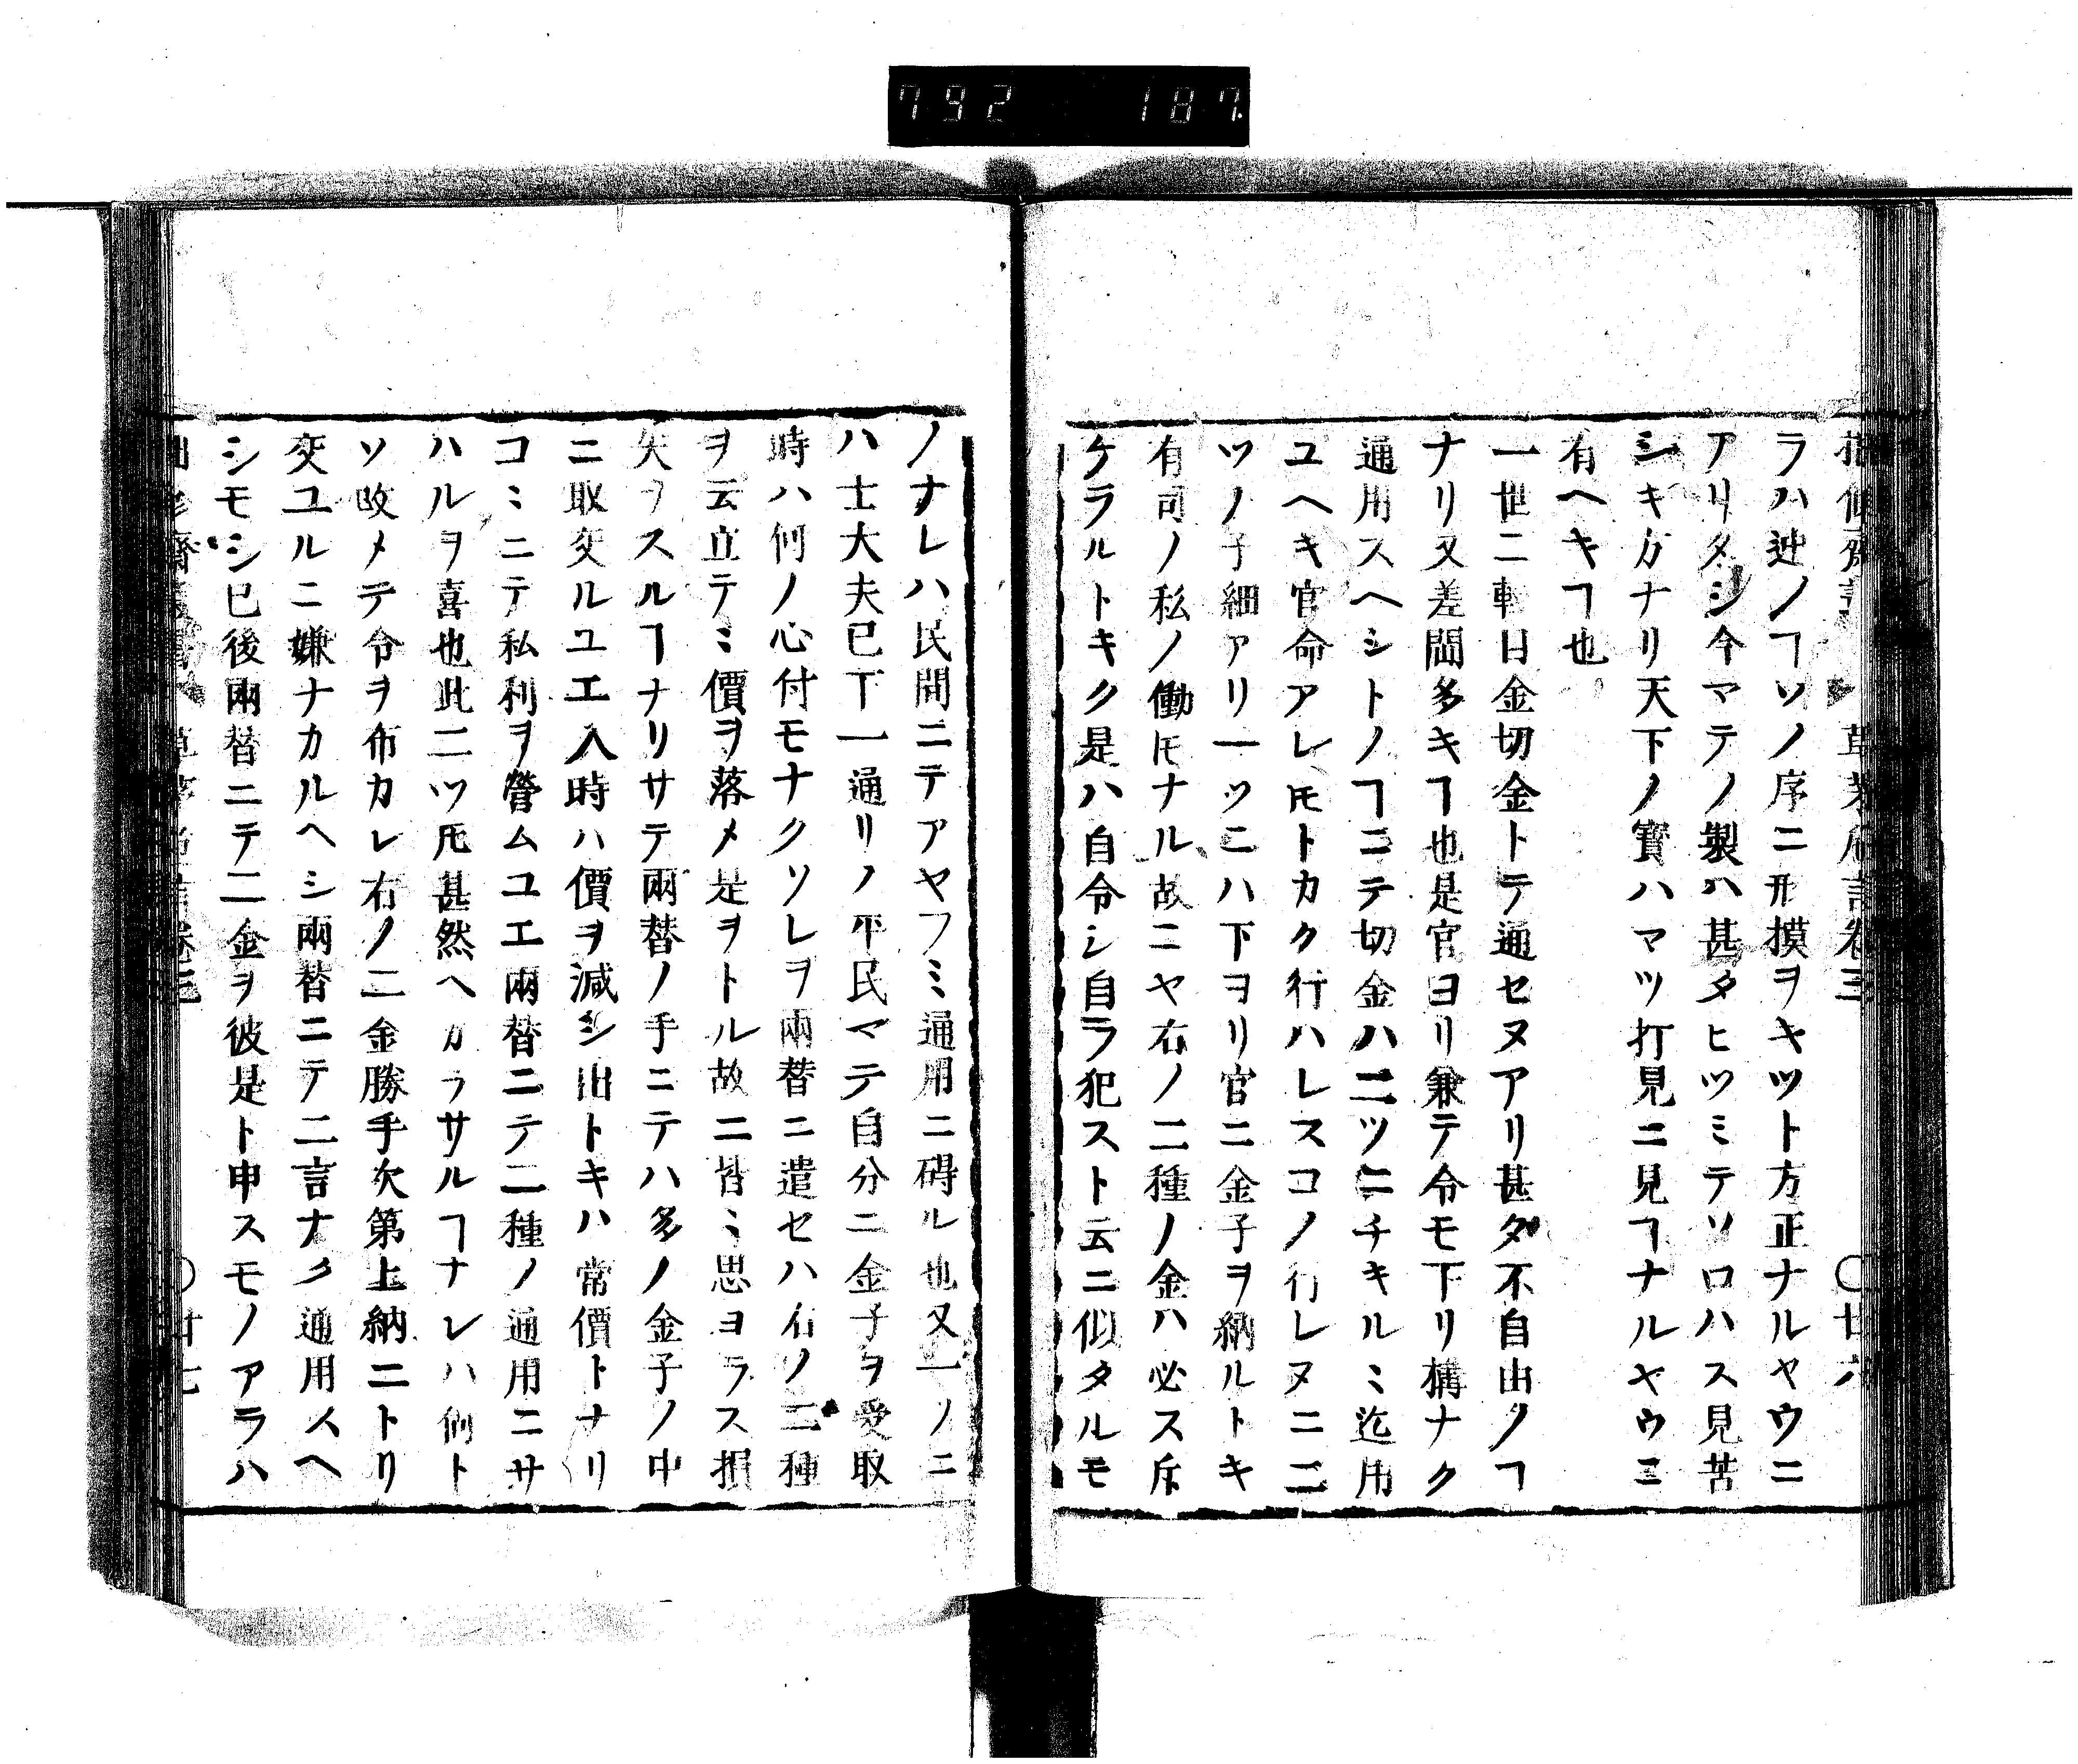 792 187
ラハ迚ノヿソノ序ニ形摸ヲキツト方正ナルヤウニ
アリタシ今マテノ製ハ甚タヒツミテソロハス見苦
シキカナリ天下ノ寳ハマツ打見ニ見ヿナルヤウニ
有ヘキヿ也
一世ニ軽目金切金トテ通セヌアリ甚タ不自由ノヿ
ナリ又差閊多キヿ也是官ヨリ兼テ令モ下リ構ナク
通用スヘシトノヿニテ切金ハ二ツニチキルミ迄用
ユヘキ官命アレ𪜈トカク行ハレスコノ行レヌニ二
ツノ子細アリ一ツニハ下ヨリ官ニ金子ヲ納ルトキ
有司ノ私ノ働𪜈ナル故ニヤ右ノ二種ノ金ハ必ス斥
ケラルトキク是ハ自令シ自ラ犯スト云ニ似タルモ
ノナレハ民間ニテアヤフミ通用ニ碍ル也又一ソニ
ハ士大夫已下一通リノ平民マテ自分ニ金子ヲ受取
時ハ何ノ心付モナクソレヲ兩替ニ遣セハ右ノ二種
ヲ云立テミ價ヲ落メ是ヲトル故ニ皆ミ思ヨラス損
失ヲスルヿナリサテ兩替ノ手ニテハ多ノ金子ノ中
ニ取交ルユエ入時ハ價ヲ減シ出トキハ常價トナリ
コミニテ私利ヲ營ムユエ兩替ニテ二種ノ通用ニサ
ハルヲ喜也此二ツ𪜈甚然ヘカラサルヿナレハ何ト
ソ改メテ令ヲ布カレ右ノ二金勝手次第上納ニトリ
交ユルニ嫌ナカルヘシ兩替ニテ二言ナク通用スヘ
シモシ已後兩替ニテ二金ヲ彼是ト申スモノアラハ